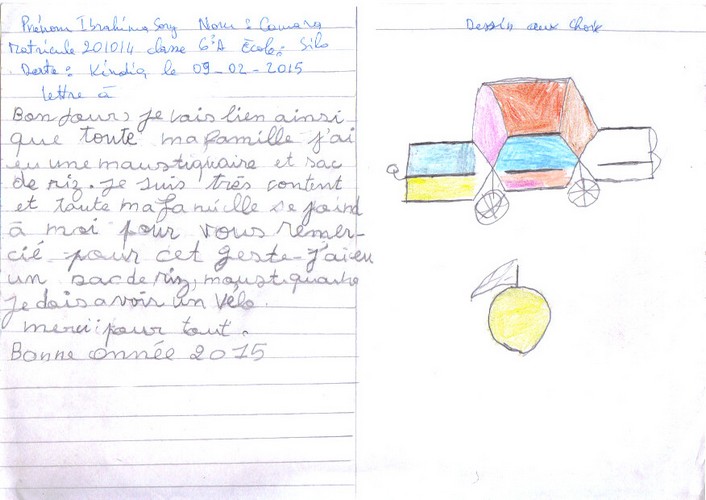 Prénom Ibrahima Sory Nom : Camara
Matricule 201014 classe 6èA École : Silo
Date : Kindia le 09-02-2015
lettre à
Bonjour, je vais lien ainsi
que toute ma famille j'ai
eu une maustiquaire et sac
de riz. Je suis très content
et toute ma famille se joind
à moi pour vous remer-
cié pour cet geste j'ai eu
un sac de riz, moustiquaire
je dois avoir un vélo.
merci pour tout.
Bonne année 2015
Dessin aux choix